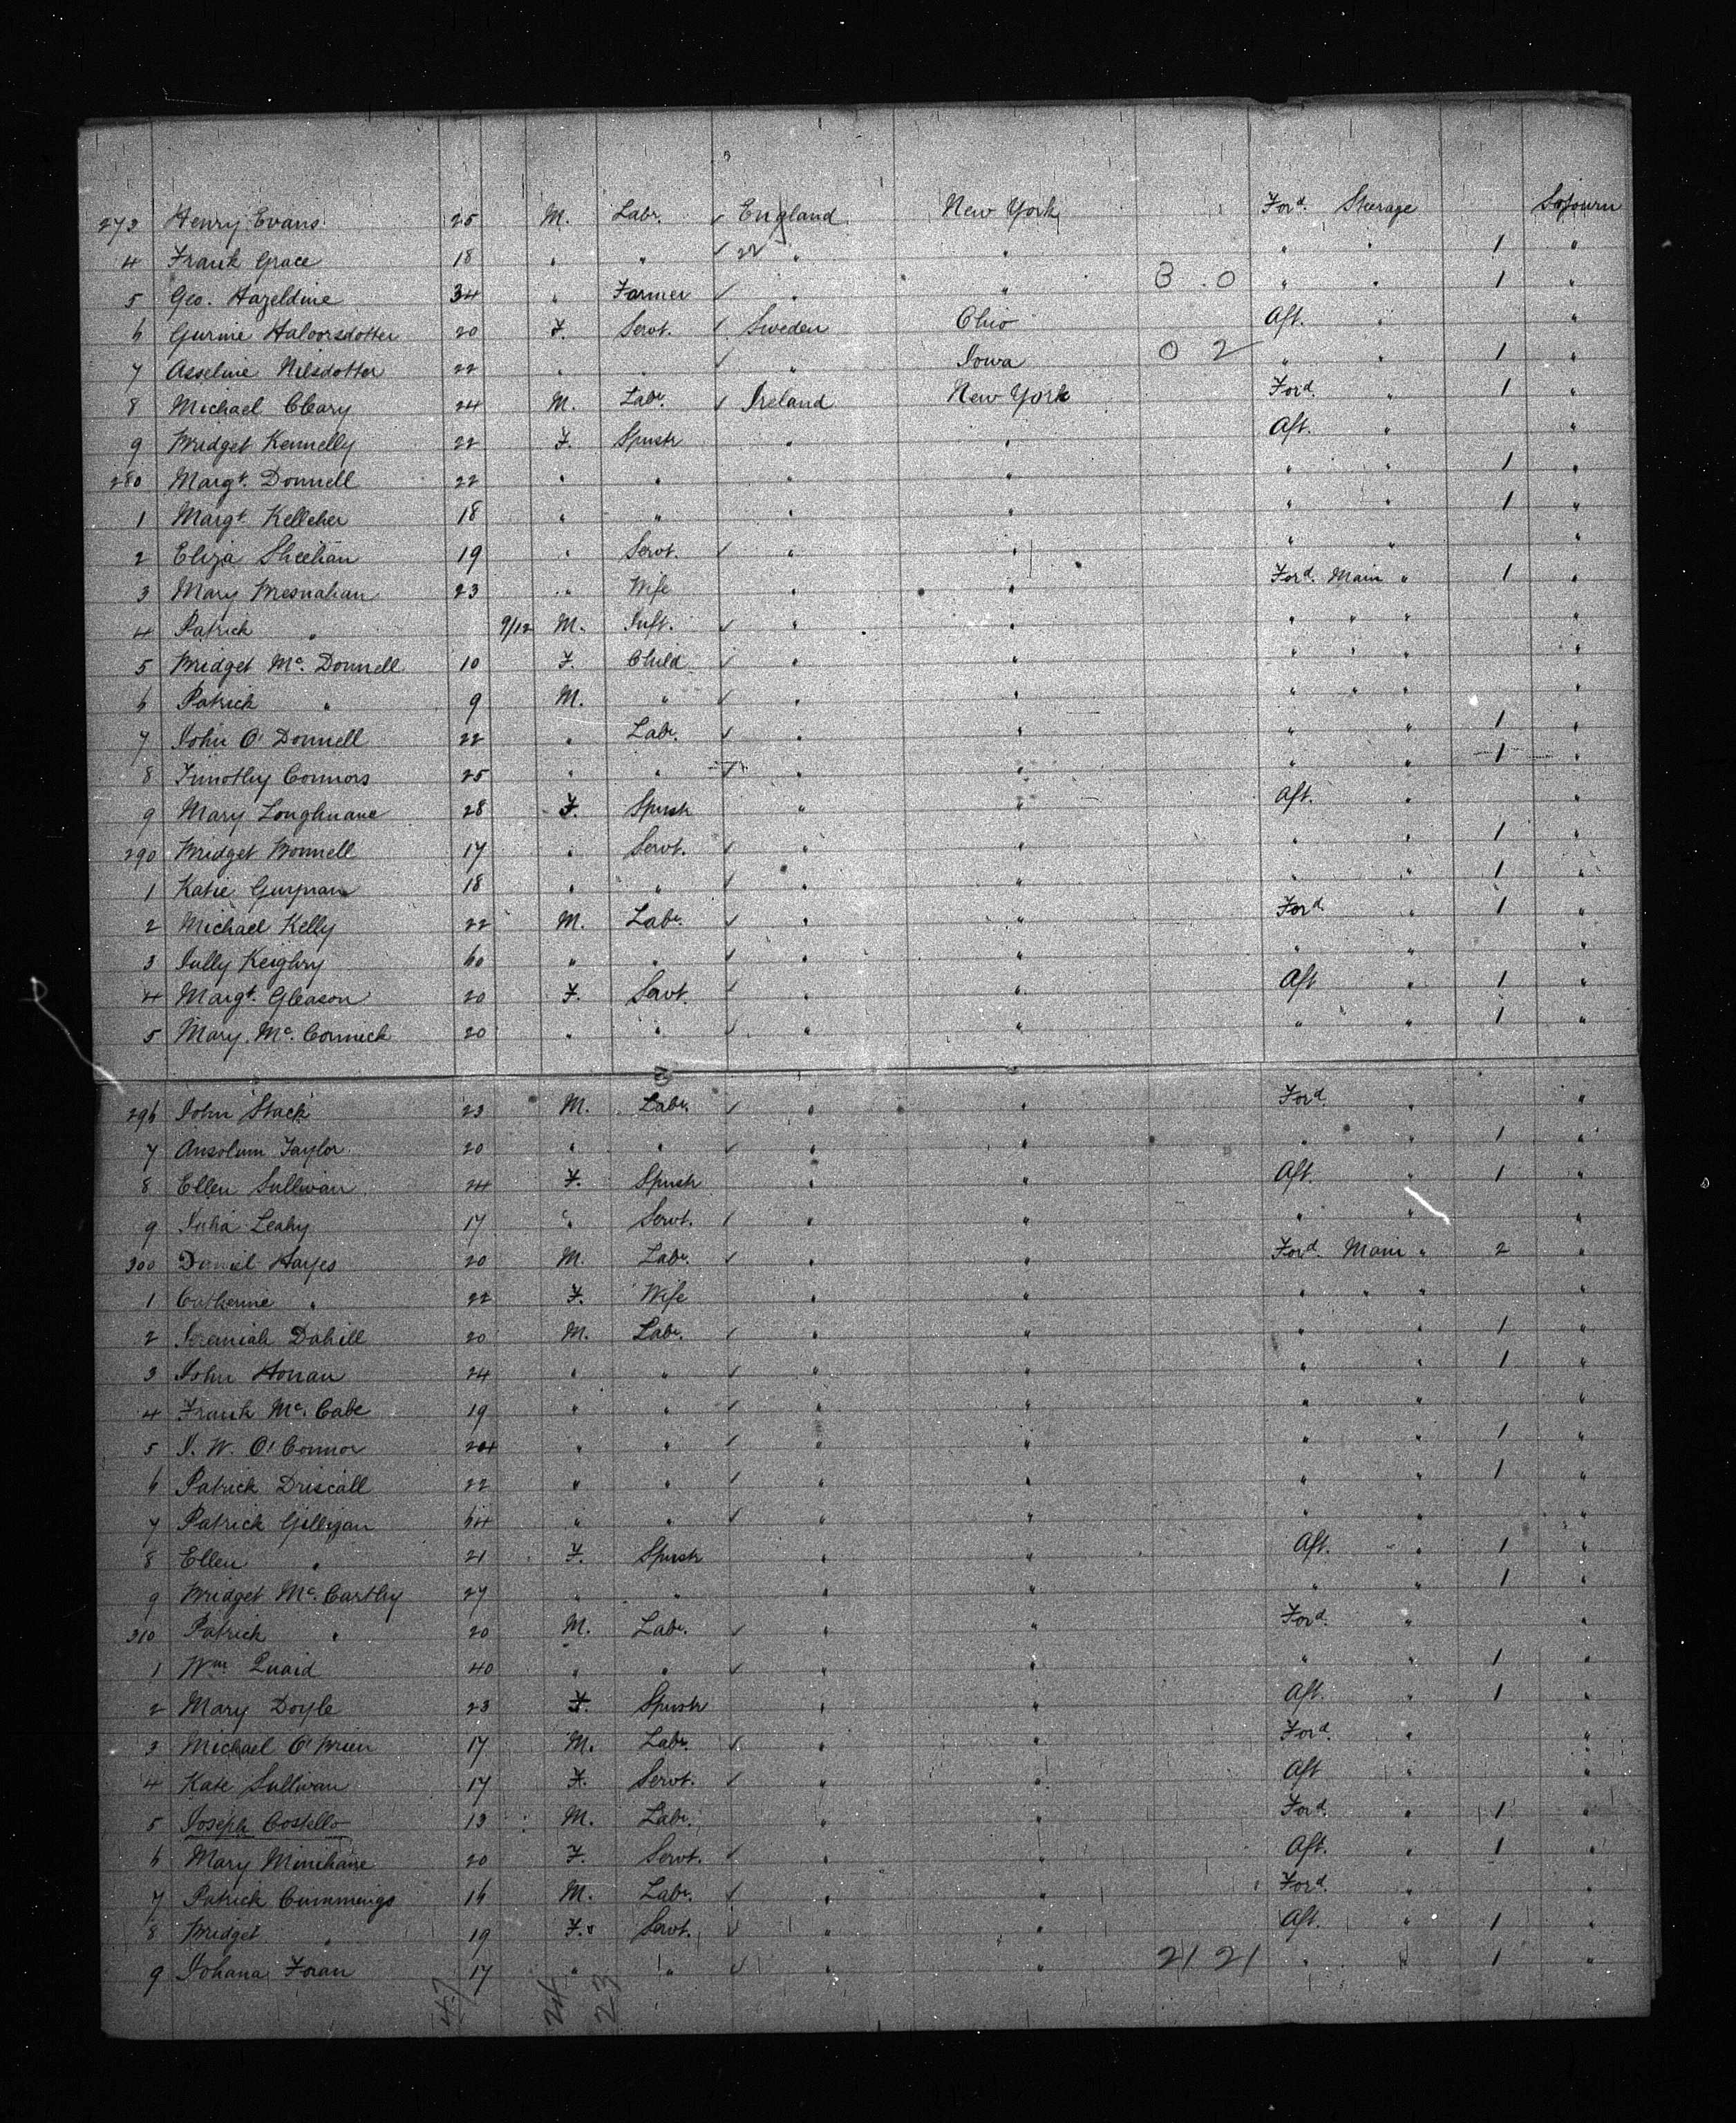 273 Henry Evans 25 M. Labr. ✓ England New York Ford. Steerage Sojourn
4 Frank Grace 18 " " ✓ 22 " " " " 1 "
5 Geo. Hazeldine 34 " Farmer ✓ " " 3.0 " " 1 "
6 Gurine Haloorsdotter 20 F. Servt. ✓ Sweden Ohio Aft. " "
7 Asseline Nilsdotter 22 " " ✓ " Iowa 0 2 " " 1 "
8 Michael Cleary 24 M. Labr. ✓ Ireland New York Ford. " 1 "
9 Bridget Kennelly 22 F. Spustr " " Aft. " "
280 Margt. Donnell 22 " " " " " " 1 "
1 Margt. Kelleher 18 " " " " " " 1 "
2 Eliza Sheehan 19 " Servt. ✓ " " " " "
3 Mary Bresnahan 23 " Wife " " Ford. Main " 1 "
4 Patrick " 9/12 M. Inft. ✓ " " " " " "
5 Bridget Mc. Donnell 10 F. Child ✓ " " " " " "
6 Patrick " 9 M. " ✓ " " " " " "
7 John O' Donnell 22 " Labr. ✓ " " " " 1 "
8 Timothy Connors 25 " " ✓ " " " " 1 "
9 Mary Loughnane 28 F. Spustr " " Aft. " "
290 Bridget Bonnell 17 " Servt. ✓ " " " " 1 "
1 Katie 18 " " ✓ " " " " 1 "
2 Michael Kelly 22 M. Labr. ✓ " " Ford. " 1 "
3 Keighry 60 " " ✓ " " " " "
4 Margt. Gleason 20 F. Servt. ✓ " " Aft " 1 "
5 Mary Mc. Cormick 20 " " ✓ " " " " 1 "
296 John Stack 23 M. Labr. ✓ " " Ford. " "
7 Ansolum Taylor 20 " " ✓ " " " " 1 "
8 Ellen Sullivan 24 F. Spustr " " Aft. " 1 "
9 Julia Leahy 17 " Servt. ✓ " " " " "
300 Daniel Hayes 20 M. Labr. ✓ " " Ford. Main " 2 "
1 Catherine " 22 F. Wife " " " " " "
2 Jeremiah Dahill 20 M. Labr. ✓ " " " " 1 "
3 John Honan 24 " " ✓ " " " " 1 "
4 Frank Mc. Cabe 19 " " ✓ " " " " "
5 J. W. O' Connor 24 " " ✓ " " " " 1 "
6 Patrick Driscall 22 " " ✓ " " " " 1 "
7 Patrick Gilligan 64 " " ✓ " " " " "
8 Ellen " 21 F. Spustr " " Aft. " 1 "
9 Bridget Mc. Carthy 27 " " " " " " 1 "
310 Patrick " 20 M. Labr. ✓ " " Ford. " "
1 Wm Quaid 40 " " ✓ " " " " 1 "
2 Mary Doyle 23 F. Spustr " " Aft. " 1 "
3 Michael O' Brien 17 M. Labr. ✓ " " Ford. " "
4 Kate Sullivan 17 F. Servt. ✓ " " Aft " "
5 Joseph Costello 13 M. Labr. " " Ford. " 1 "
6 Mary Minihane 20 F. Servt. ✓ " " Aft. " 1 "
7 Patrick Cummings 16 M. Labr. ✓ " " Ford. " "
8 Bridget " 19 F. Servt. ✓ " " Aft. " 1 "
9 Johana Foran 17 " " ✓ " " 21 21 " " 1 "
47 24 23